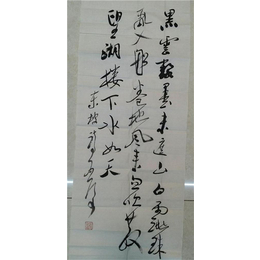 黑雲翻墨未遮山白雨跳珠
亂入船卷地風來忽吹散
望湖樓下水如天
東坡詩